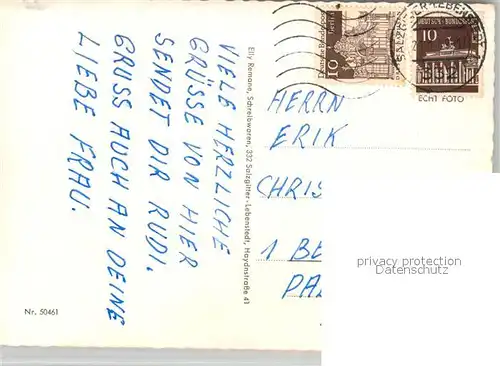 VIELE HERZLICHE
GRÜSSE VON HIER
SENDET DIR RUDI.
GRUSS AUCH AN DEINE
LIEBE FRAU.
Elly Remane, Schreibwaren, 332 Salzgitter-Lebenstedt, Haydnstraße 41
Deutsche Bundespost
Berlin
10
10
DEUTSCHE BUNDESPOST BERLIN
332
ECHT FOTO
HERRN
ERIK
CHRIS
1 BE
PA
privacy protection
Datenschutz
Nr. 50461